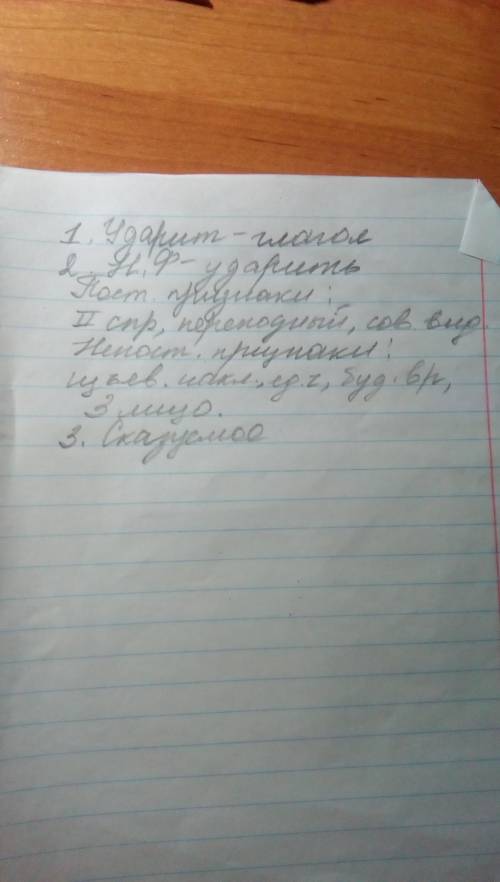 1. Ударит - глагол
2. Н.Ф - ударить
Пост. признаки:
II спр, переходный, сов. вид.
Непост. признаки:
изъев. накл., ед.ч, буд. вр,
3 лицо.
3. Сказуемое